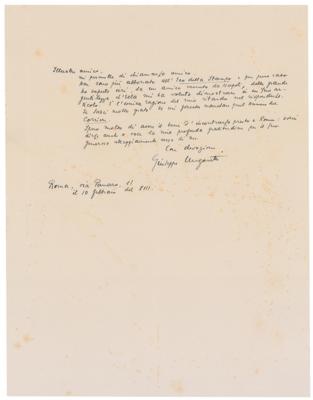 Illustre amico,
mi permetta di chiamarla amico.
Non sono più abbonato all'Eco della Stampa, e per puro caso
ho saputo ieri, da un amico venuto da Napoli, della grande
gentilezza d'Ella mi ha voluto dimostrare in un Suo ar-
ticolo. È l'unica ragione del mio ritardo nel risponderle.
Le sarei molto grato se mi facesse mandare quel numero del
Corriere.
Spero molto di avere il bene d'incontrarla presto a Roma: vorrei
dirle anche a voce la mia profonda gratitudine per il Suo
generoso atteggiamento verso di me.
Con devozione
Giuseppe Ungaretti
Roma, via
il 10 febbraio del VIII.